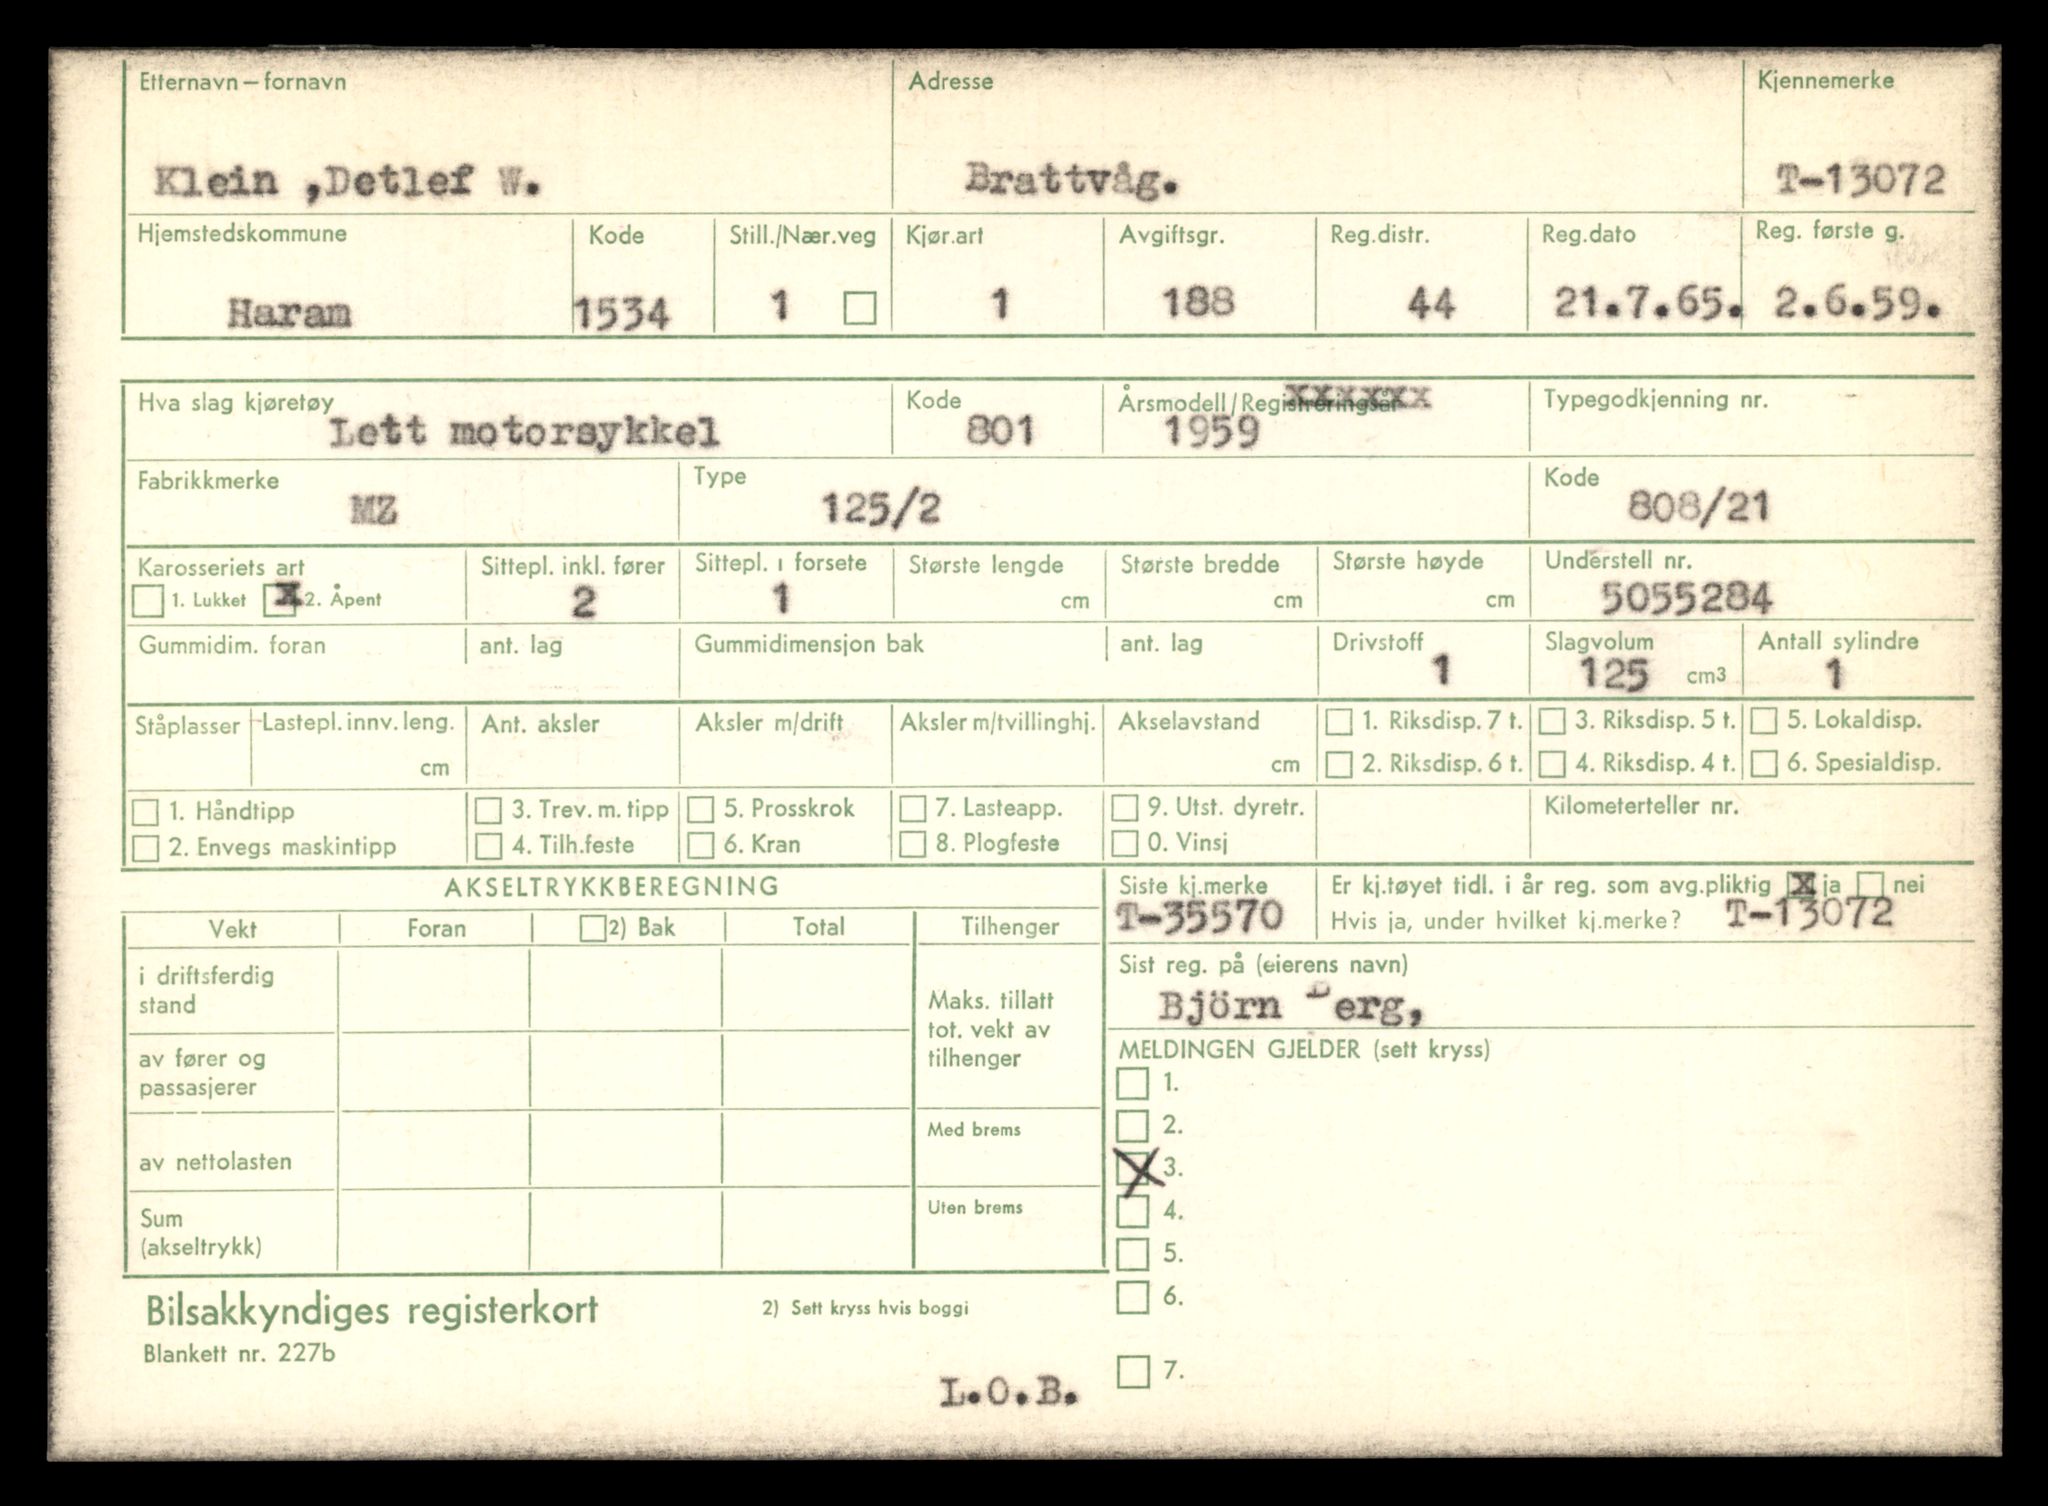 Etternavn – fornavn Adresse Kjennemerke
Klein ,Detlef W. Brattvåg. T-13072
Hjemstedskommune Kode Still./Nær.veg Kjør.art Avgiftsgr. Reg.distr. Reg.dato Reg. første g.
Haram 1534 1 1 188 44 21.7.65. 2.6.59.
Hva slag kjøretøy Kode Årsmodell/Registreringsår xxxxxx Typegodkjenning nr.
Lett motorsykkel 801 1959
Fabrikkmerke Type Kode
MZ 125/2 808/21
Karosseriets art Sittepl. inkl. fører Sittepl. i forsete Største lengde Største bredde Største høyde Understell nr.
1. Lukket x 2. Åpent 2 1 cm cm cm 5055284
Gummidim. foran ant. lag Gummidimensjon bak ant. lag Drivstoff Slagvolum Antall sylindre
1 125 cm3 1
Ståplasser Lastepl. innv. leng. Ant. aksler Aksler m/drift Aksler m/tvillinghj. Akselavstand 1. Riksdisp. 7 t. 3. Riksdisp. 5 t. 5. Lokaldisp.
cm cm 2. Riksdisp. 6 t. 4. Riksdisp. 4 t. 6. Spesialdisp.
1. Håndtipp 3. Trev. m. tipp 5. Prosskrok 7. Lasteapp. 9. Utst. dyretr. Kilometerteller nr.
2. Envegs maskintipp 4. Tilh.feste 6. Kran 8. Plogfeste 0. Vinsj
AKSELTRYKKBEREGNING Siste kj.merke Er kj.tøyet tidl. i år reg. som avg.pliktig x ja nei
T-35570 Hvis ja, under hvilket kj.merke? T-13072
Vekt Foran 2) Bak Total Tilhenger
Sist reg. på (eierens navn)
Björn Berg,
i driftsferdig
stand
Maks. tillatt
tot. vekt av
tilhenger
av fører og
passasjerer
av nettolasten
Med brems
Sum
(akseltrykk)
Uten brems
MELDINGEN GJELDER (sett kryss)
1.
2.
X 3.
4.
5.
6.
7.
Bilsakkyndiges registerkort 2) Sett kryss hvis boggi
Blankett nr. 227b
L.O.B.